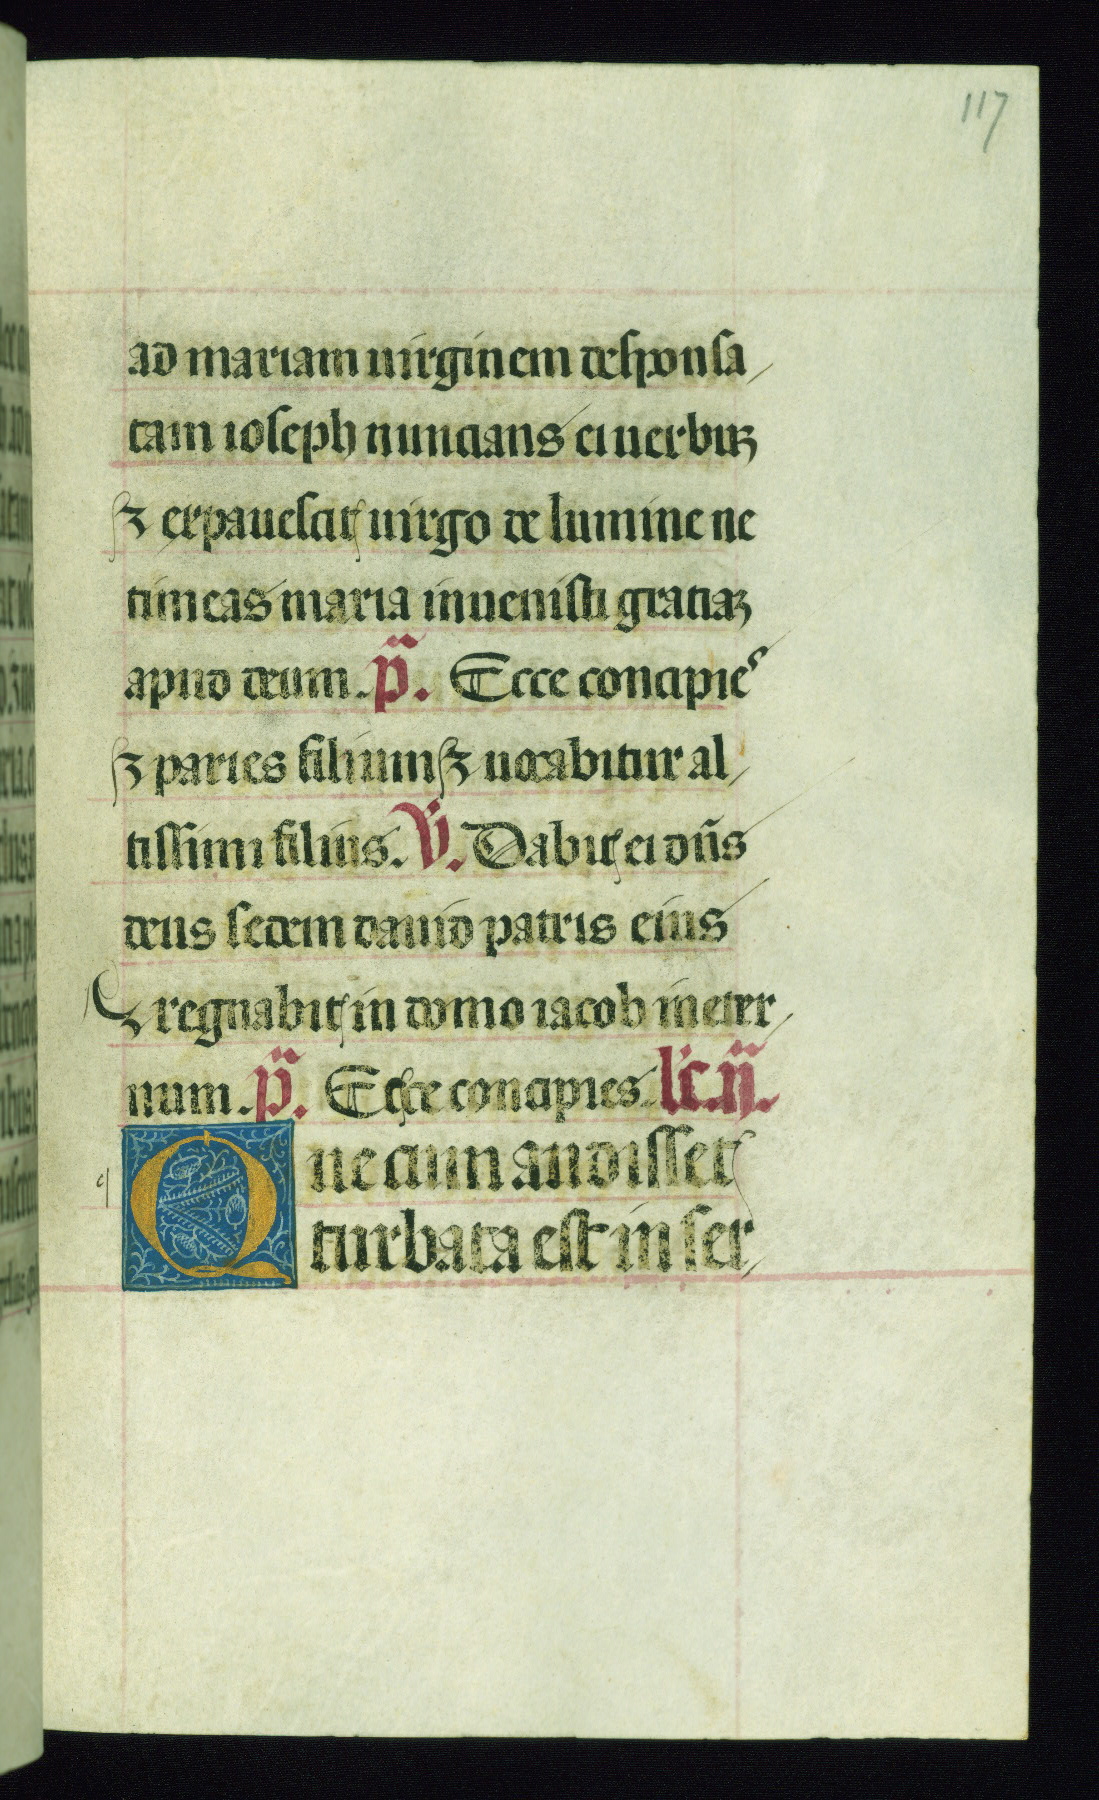 117
ad mariam uirginem desponsa/
tam ioseph nuncians ei uerbuꝫ
⁊ expauescit uirgo de lumine ne
timeas maria inuenisti gratiaꝫ
apud deum. p̈. Ecce concipies
⁊ paries filium ⁊ uocabitur al/
tissimi filius. V̇. Dabit ei dn̄s
deus sedem dauid patris eius
⁊ regnabit in domo iacob in eter/
num. p̈. Ecce concipies. lc̄. ij.
q Que cum audisset
turbata est in ser/